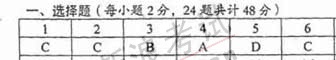 一、选择题（每小题2分，24题共计48分）
1 2 3 4 5 6
C C B A D C